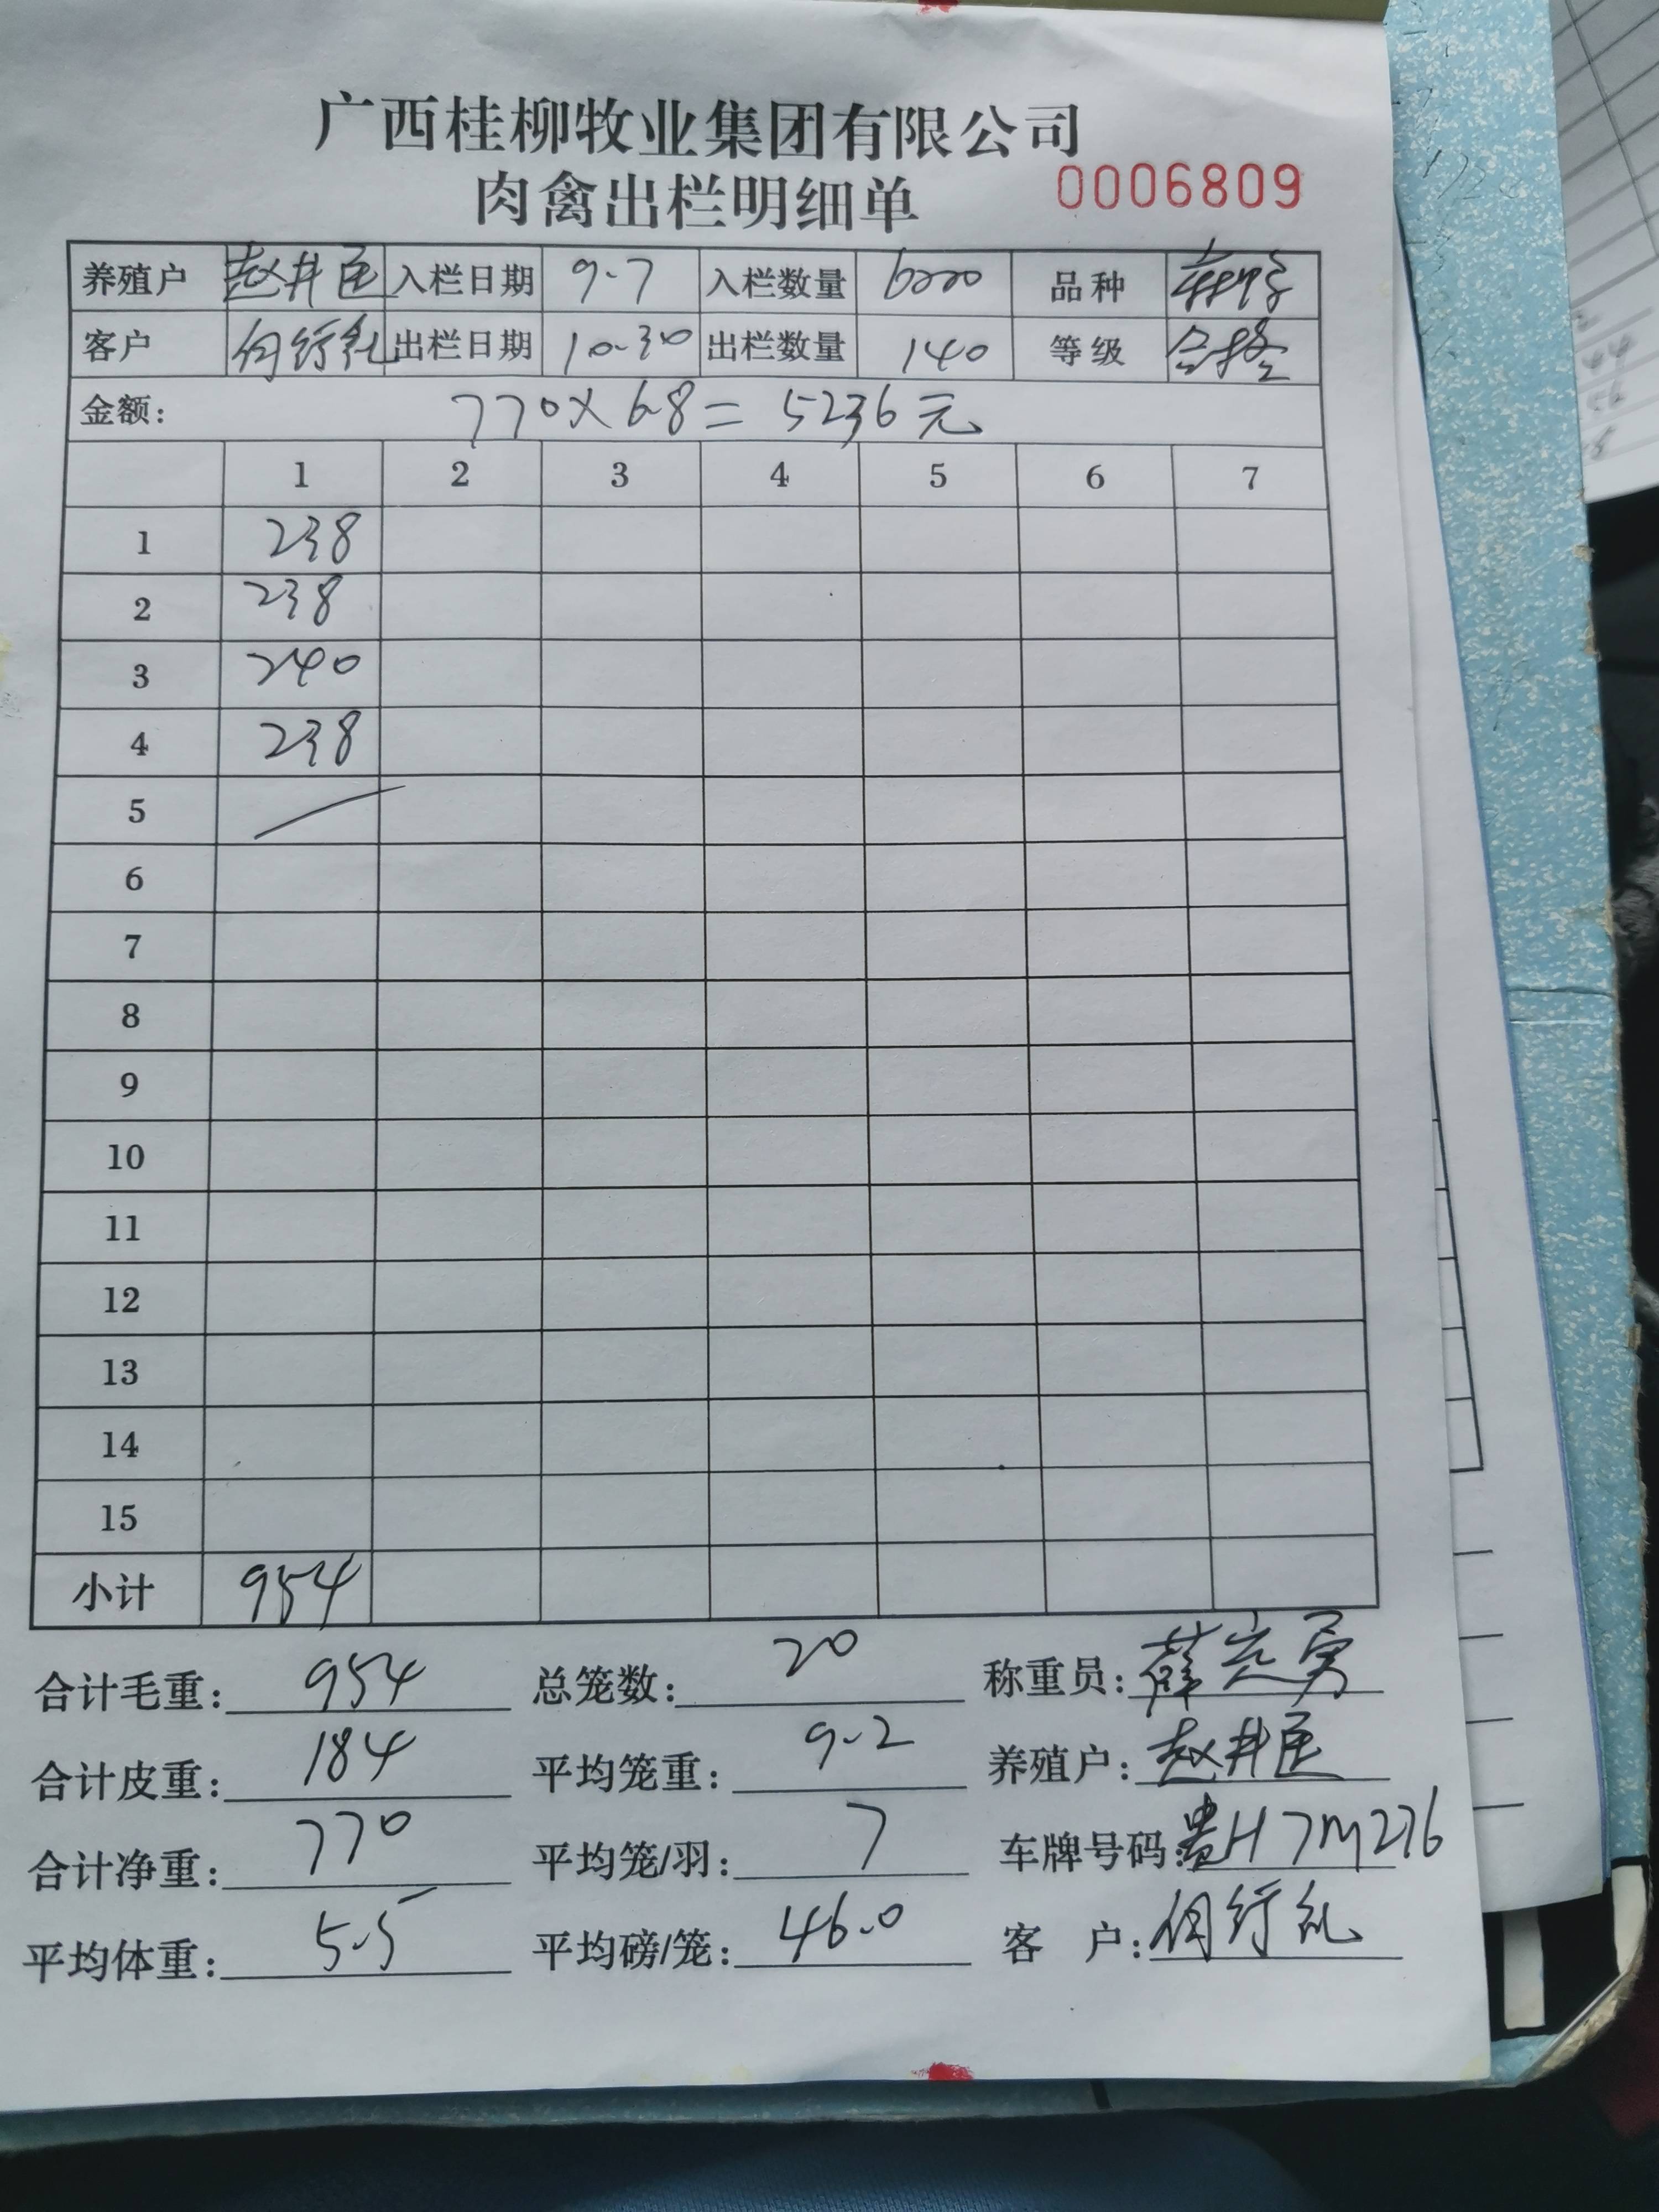 广西桂柳牧业集团有限公司
肉禽出栏明细单 0006809
养殖户 赵井医 入栏日期 9-7 入栏数量 6000 品种
客户 何行礼 出栏日期 10-30 出栏数量 140 等级 合格
金额: 770×6.8=5236元
1 2 3 4 5 6 7
1 238
2 238
3 240
4 238
5
6
7
8
9
10
11
12
13
14
15
小计 954
合计毛重: 954 总笼数: 20 称重员: 薛 勇
合计皮重: 184 平均笼重: 9.2 养殖户: 赵井医
合计净重: 770 平均笼/羽: 7 车牌号码: 贵H7M276
平均体重: 5.5 平均磅/笼: 46.0 客 户: 何行礼